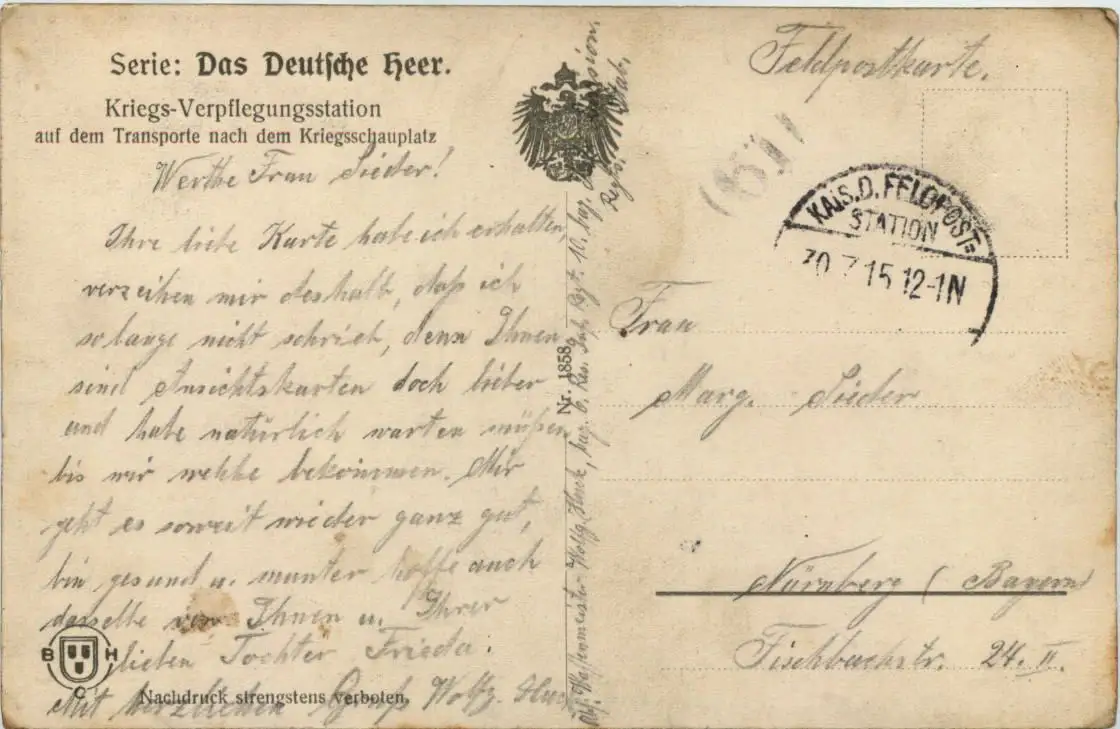 Serie: Das Deutsche Heer.
Kriegs-Verpflegungsstation
auf dem Transporte nach dem Kriegsschauplatz
Werthe Frau Sieder!
Ihre liebe Karte habe ich erhalten,
verzeihen mir deshalb, daß ich
so lange nicht schrieb, denn Ihnen
sind Ansichtskarten doch lieber
und habe natürlich warten müßen
bis wir welche bekommen. Mir
geht es soweit wieder ganz gut,
bin gesund u. munter hoffe auch
dasselbe von Ihnen u. Ihrer
lieben Tochter Frieda.
Mit herzlichen Gruß Wolfg.
B H
C
Nachdruck strengstens verboten.
Nr. 1858
Abs: Waffenmeister Wolfg. bay. 6. Res. Inf. Regt. 10. bay.
Regts. Stab.
Feldpostkarte.
KAIS. D. FELDPOST=
STATION
30 7 15 12-1N
Frau
Marg. Sieder
Nürnberg (Bayern)
Fischbachstr. 24. II.